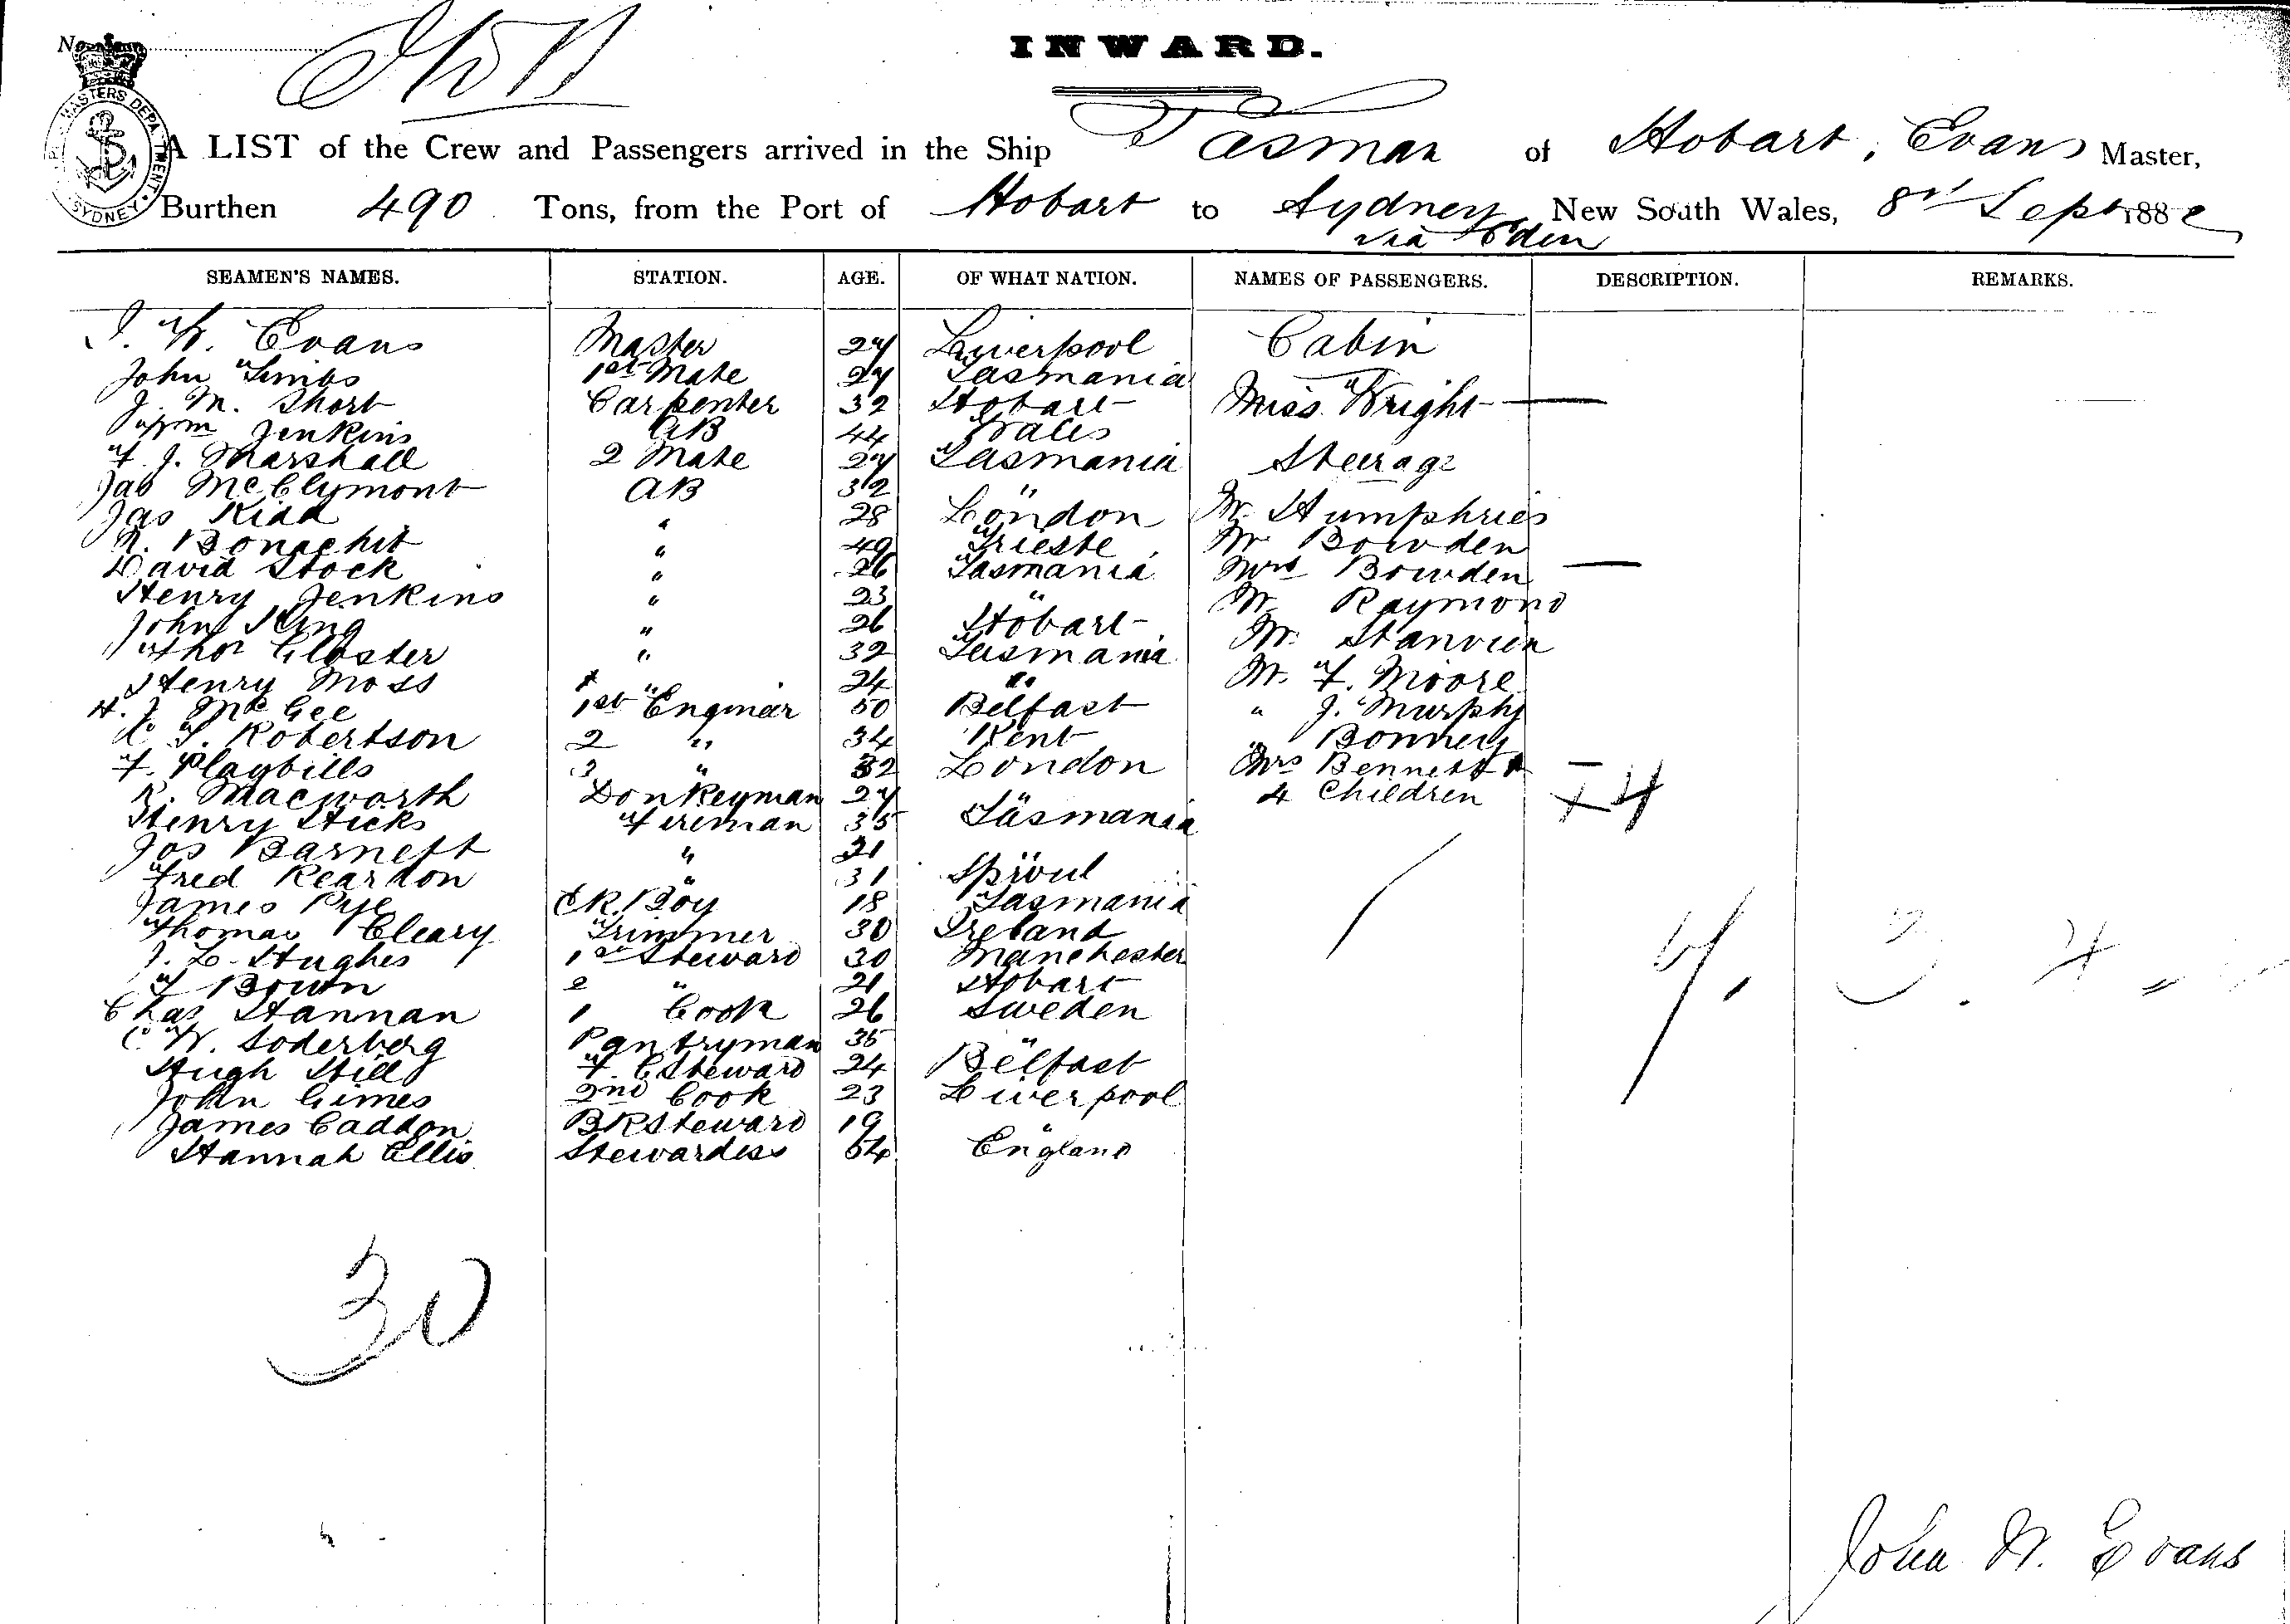 No.
INWARD.
A LIST of the Crew and Passengers arrived in the Ship Tasman of Hobart, Evans Master,
Burthen 490 Tons, from the Port of Hobart to Sydney, New South Wales, 8th Sept 1882
via Eden
SEAMEN'S NAMES. STATION. AGE. OF WHAT NATION. NAMES OF PASSENGERS. DESCRIPTION. REMARKS.
J. W. Evans Master 27 Liverpool Cabin
John Simbs 1st Mate 27 Tasmania
J. M. Short Carpenter 32 Hobart Miss Wright
Wm Jenkins AB 44 Wales
F. J. Marshall 2 Mate 27 Tasmania Steerage
Jas McClymont AB 32 "
Jas Kidd " 28 London Mr Humphries
N. Bonachit " 40 Trieste Mr Bowden
David Stock " 26 Tasmania Mrs Bowden
Henry Jenkins " 23 " Mr Raymond
John King " 26 Hobart
Thos Gloster " 32 Tasmania Mr.
Henry Moss " 24 " Mr. F. Moore
H. J. McGee 1st Engineer 50 Belfast " J. Murphy
Robertson 2 " 34 Kent
F. Playbills 3 " 32 London Mrs Bennett
R. Macworth Donkeyman 27 " 4 Children
Henry Hicks Fireman 35 Tasmania
Jos Barnett " 21 "
Fred Reardon " 31
James Pye Boy 18 Tasmania
Thomas Cleary Trimmer 30 Ireland
J. L. Hughes 1st Steward 30 Manchester
F Bown 2 " 21 Hobart
Chas Hannan 1 Cook 26 Sweden
C. W. Soderberg Pantryman 35 "
Hugh Hill F. C Steward 24 Belfast
John Gimes 2nd Cook 23 Liverpool
James Caddon BR Steward 19 "
Hannah Ellis Stewardess 54 England
30
John W. Evans